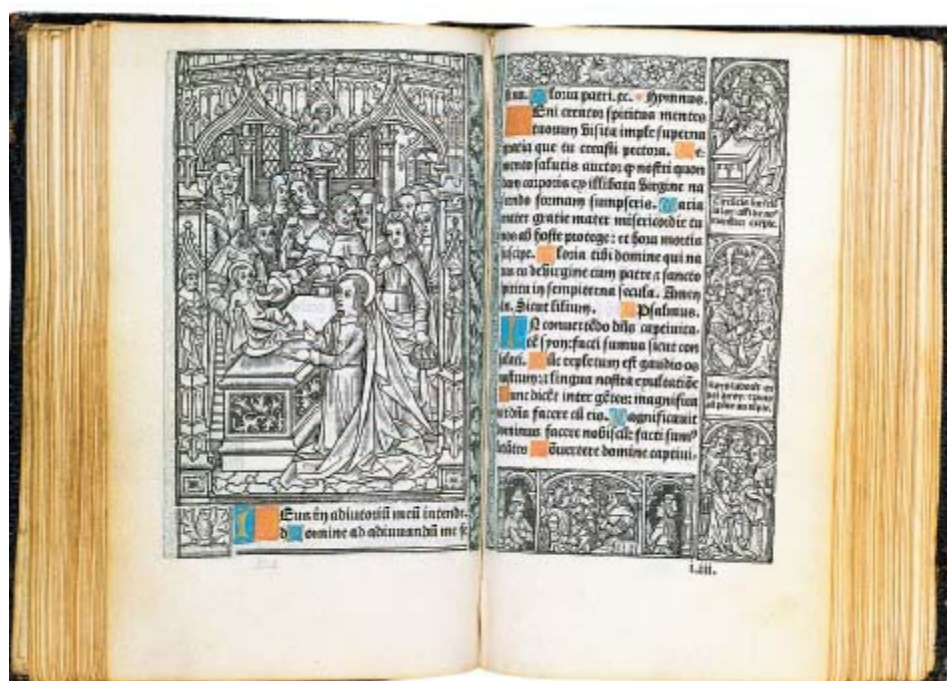 Eus in adiutoriũ meũ intende.
domine ad adiuvandũ me fe
loria patri. ⁊c. Hymnus.
Eni creator ſpiritus mentes
tuorum viſita imple ſuperna
gratia que tu creaſti pectora.
mento ſalutis auctor ꝙ noſtri quon
dam corporis ex illibata virgine na
ſcendo formam ſumpſeris. Maria
mater gratie mater miſericordie tu
nos ab hoſte protege: et hora mortis
ſuſcipe. Gloria tibi domine qui na
tus es de virgine cum patre ⁊ ſancto
ſpiritu in ſempiterna ſecula. Amen
Sicut lilium. Pſalmus.
IN convertẽdo dñs captivita
tẽ ſyon: facti ſumus ſicut con
ſolati. repletum eſt gaudio os
noſtrum: ⁊ lingua noſtra exultatiõe
Tunc dicẽt inter gẽtes: magnifica
vit dñs facere cũ eis. Magnificavit
dominus facere nobiſcũ: facti ſumꝰ
letãtes Cõvertere domine captivi-
l.iii.